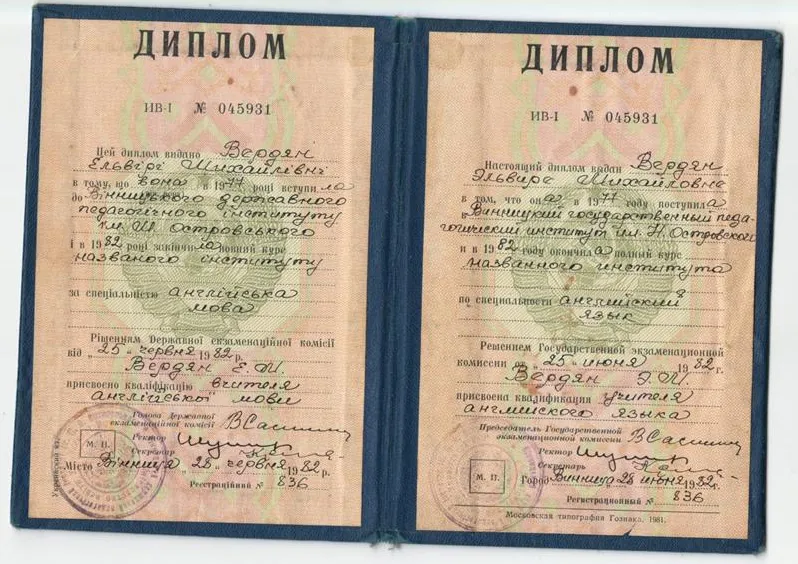 ДИПЛОМ
ИВ-I № 045931
Цей диплом видано Вердян
Ельвірі Михайлівні
в тому, що вона в 1977 році вступила
до Вінницького державного
педагогічного інституту
ім. М. Островського
і в 1982 році закінчила повний курс
названого інституту
за спеціальністю англійська
мова
Рішенням Державної екзаменаційної комісії
від „25" червня 1982 р.
Вердян Е. М.
присвоєно кваліфікацію вчителя
англійської мови
Голова Державної
екзаменаційної комісії
Ректор
Секретар
М. П.
Місто Вінниця 28 червня 1982 р.
Реєстраційний № 836
ДИПЛОМ
ИВ-I № 045931
Настоящий диплом выдан Вердян
Эльвире Михайловне
в том, что она в 1977 году поступила
в Винницкий государственный педа-
гогический институт им. Н. Островского
и в 1982 году окончила полный курс
названного института
по специальности английский
язык
Решением Государственной экзаменационной
комиссии от „25" июня 1982 г.
Вердян Э. М.
присвоена квалификация учителя
английского языка
Председатель Государственной
экзаменационной комиссии
Ректор
Секретарь
М. П.
Город Винница 28 июня 1982 г.
Регистрационный № 836
Московская типография Гознака. 1981.